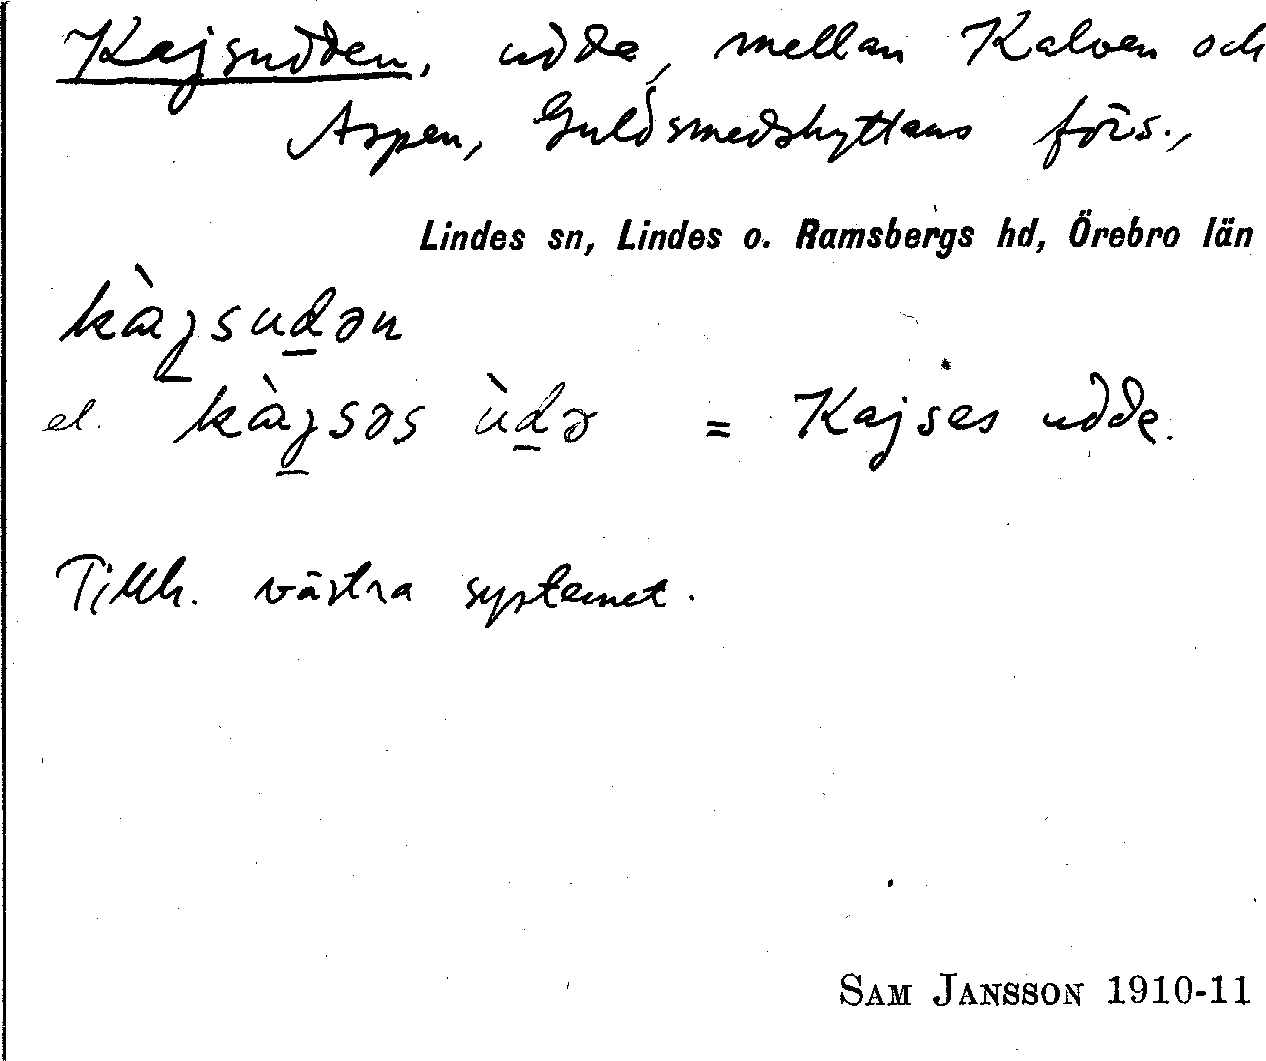 Kajsudden, udde, mellan Kalven och
Aspen, Guldsmedshyttans förs.,
Lindes sn, Lindes o. Ramsbergs hd, Örebro län
kàjsudən
el. kàjsəs ùdə = Kajses udde.
Tillh. västra systemet.
SAM JANSSON 1910-11